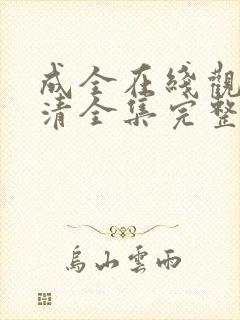 成全在綫觀
清全集完整
烏山雲雨